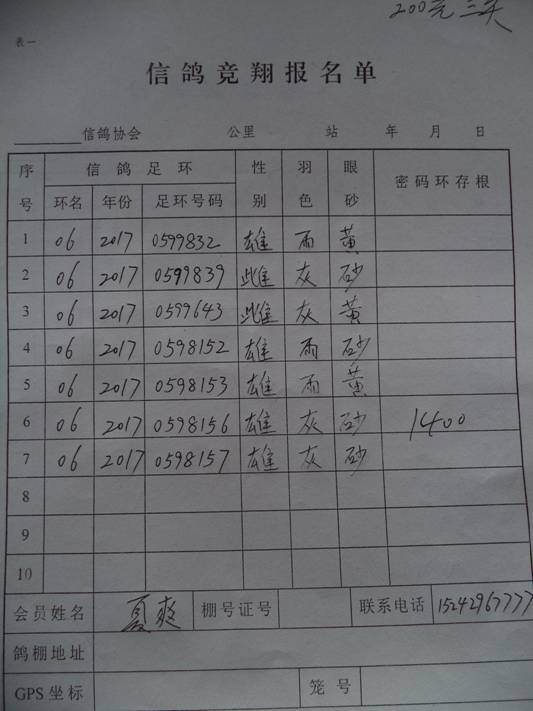 200元三关
表一
信鸽竞翔报名单
信鸽协会 公里 站 年 月 日
序号 信鸽足环 性别 羽色 眼砂 密码环存根
环名 年份 足环号码
1 06 2017 0599832 雄 雨 黄
2 06 2017 0599839 雌 灰 砂
3 06 2017 0599643 雌 灰 黄
4 06 2017 0598152 雄 雨 砂
5 06 2017 0598153 雄 雨 黄
6 06 2017 0598156 雄 灰 砂 1400
7 06 2017 0598157 雄 灰 砂
8
9
10
会员姓名 夏爽 棚号证号 联系电话 15242967777
鸽棚地址
GPS坐标 笼号